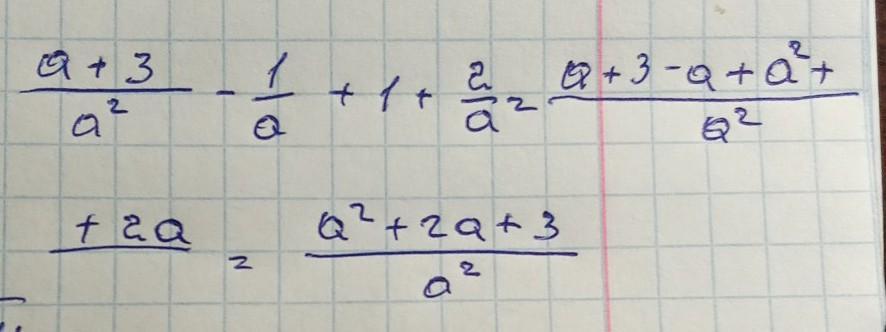 (a + 3)/a² - 1/a + 1 + 2/a = (a + 3 - a + a² +)/a²
+ 2a = (a² + 2a + 3)/a²